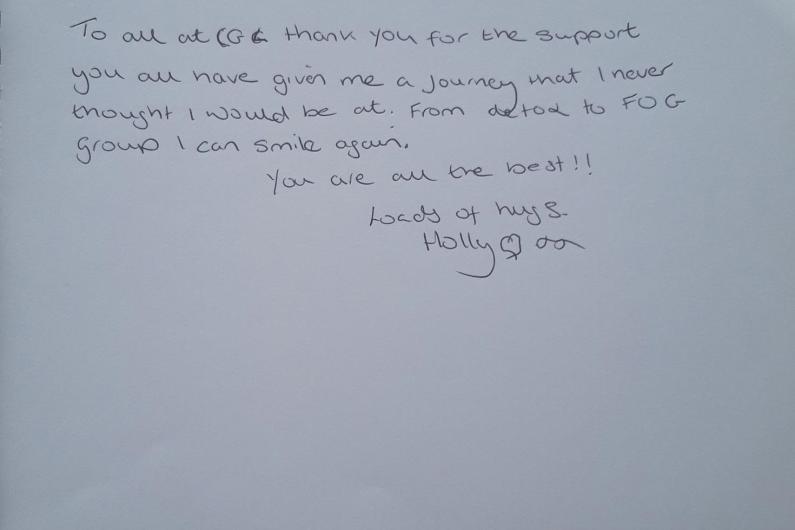 To all at CGL thank you for the support
you all have given me a Journey that I never
thought I would be at. From detox to FOG
group I can smile again.
You are all the best!!
Loads of hugs.
Holly